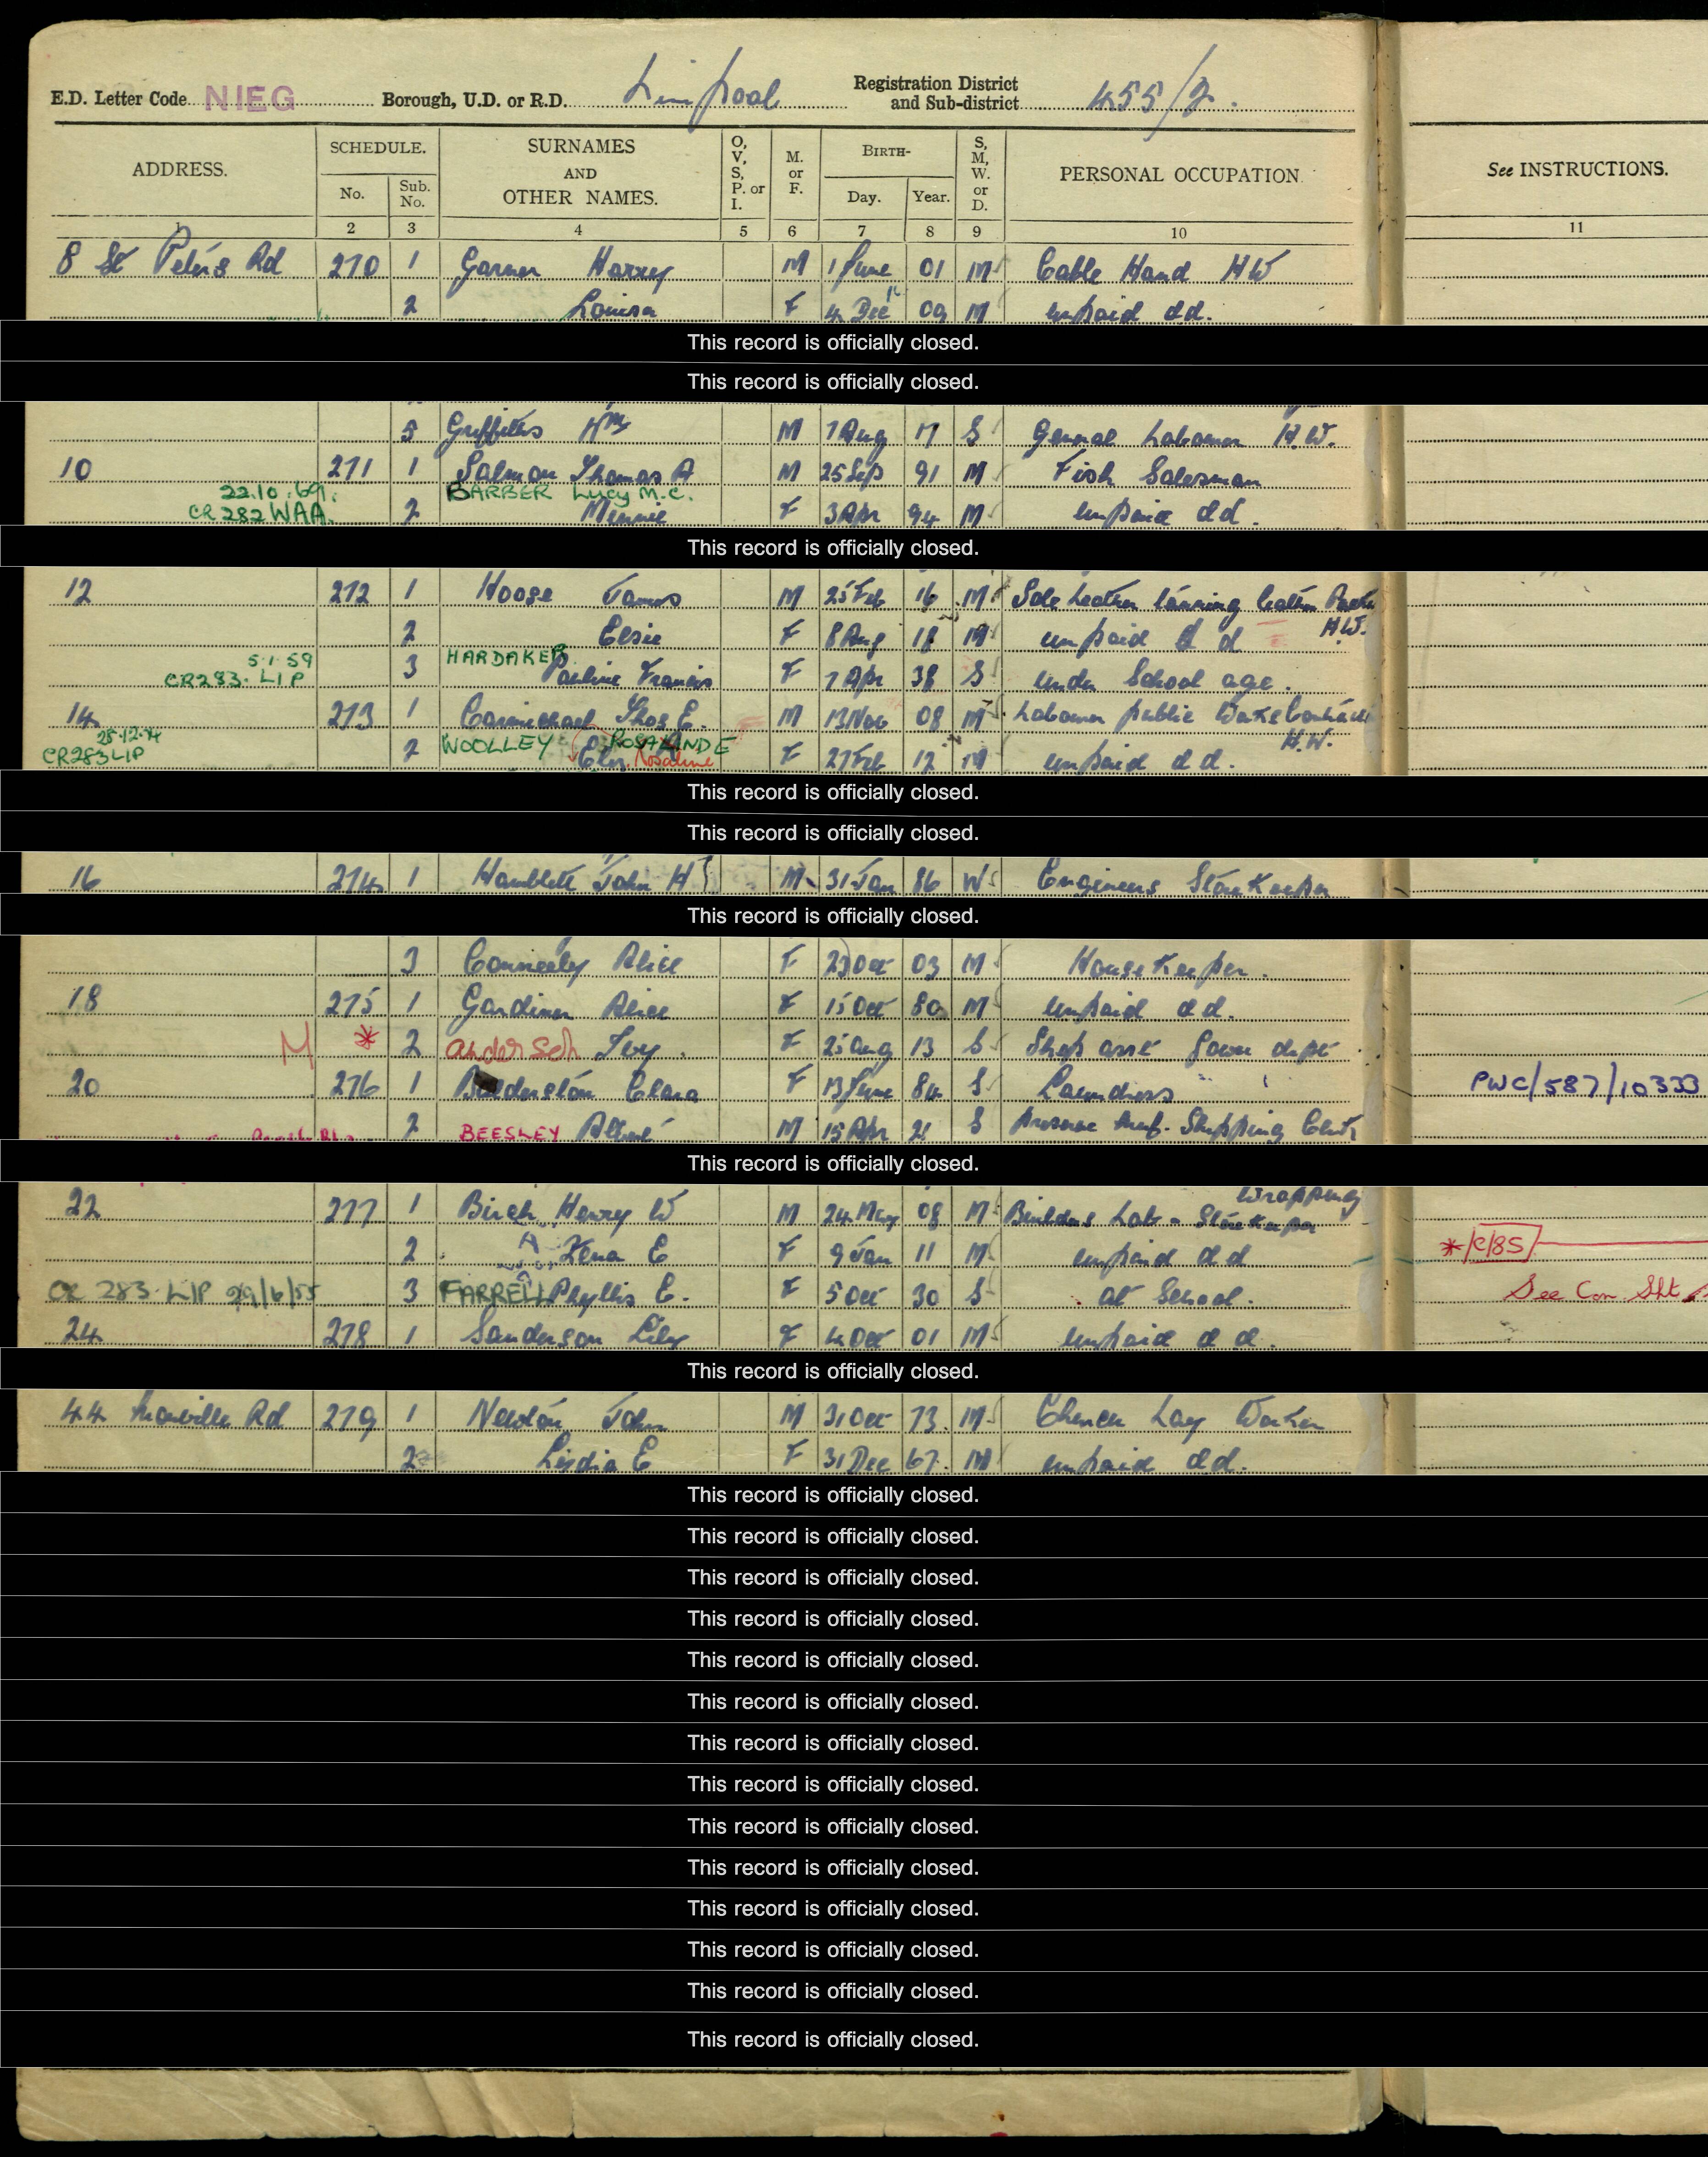 E.D. Letter Code NIEG Borough, U.D. or R.D. Liverpool Registration District and Sub-district 455/2.
ADDRESS. SCHEDULE. SURNAMES AND OTHER NAMES. O, V, S, P. or I. M. or F. BIRTH- S, M, W. or D. PERSONAL OCCUPATION See INSTRUCTIONS.
No. Sub. No. Day. Year.
1 2 3 4 5 6 7 8 9 10 11
8 St Peters Rd 270 1 Garner Harry M 1 June 01 M Cable Hand HW
2 Louisa F 4 Dec 09 M unpaid dd.
This record is officially closed.
This record is officially closed.
5 Griffiths Wm M 7 Aug 17 S General Labourer H.W.
10 271 1 Salmon Thomas A M 25 Sep 91 M Fish Salesman
22.10.69. BARBER Lucy M.C.
CR 282 WAA. 2 Minnie F 3 Apr 94 M unpaid dd.
This record is officially closed.
12 272 1 Hoose James M 25 Feb 16 M Sole Leather tanning
2 Elsie F 8 Aug 18 M unpaid d d H.W.
5.1.59 HARDAKER
CR283. LIP 3 Pauline Francis F 7 Apr 38 S under School age.
14 273 1 Carmichael Thos E. M 13 Nov 08 M Labourer public
28.12.74 WOOLLEY ROSALINDE H.W.
CR283 LIP 2 Elen. Rosaline F 27 Feb 12 M unpaid dd.
This record is officially closed.
This record is officially closed.
16 274 1 Hamblett John H M 31 Jan 86 W Engineers Storekeeper
This record is officially closed.
3 Conneely Alice F 23 Oct 03 M Housekeeper.
18 275 1 Gardiner Alice F 15 Oct 80 M unpaid dd.
M * 2 anderson Ivy. F 25 Aug 13 S Shop asst Gown dept.
20 276 1 Balderston Clara F 13 June 84 S Laundress PWC/587/10333
2 BEESLEY Albert M 15 Apr 21 S preserve Manf. Shipping Clerk
This record is officially closed.
Wrapping
22 277 1 Birch Henry W M 24 May 08 M Builders Lab - Storekeeper
2 A Lena E F 9 Jan 11 M unpaid dd * R/85
CR 283. LIP 29/6/55 3 FARRELL Phyllis E. F 5 Oct 30 S at School. See Con Sht
24 278 1 Sanderson Lily F 4 Oct 01 M unpaid d d.
This record is officially closed.
44 Rd 279 1 Newton John M 31 Oct 73. M Church Lay Worker
2 Lydia E F 31 Dec 67. M unpaid dd.
This record is officially closed.
This record is officially closed.
This record is officially closed.
This record is officially closed.
This record is officially closed.
This record is officially closed.
This record is officially closed.
This record is officially closed.
This record is officially closed.
This record is officially closed.
This record is officially closed.
This record is officially closed.
This record is officially closed.
This record is officially closed.